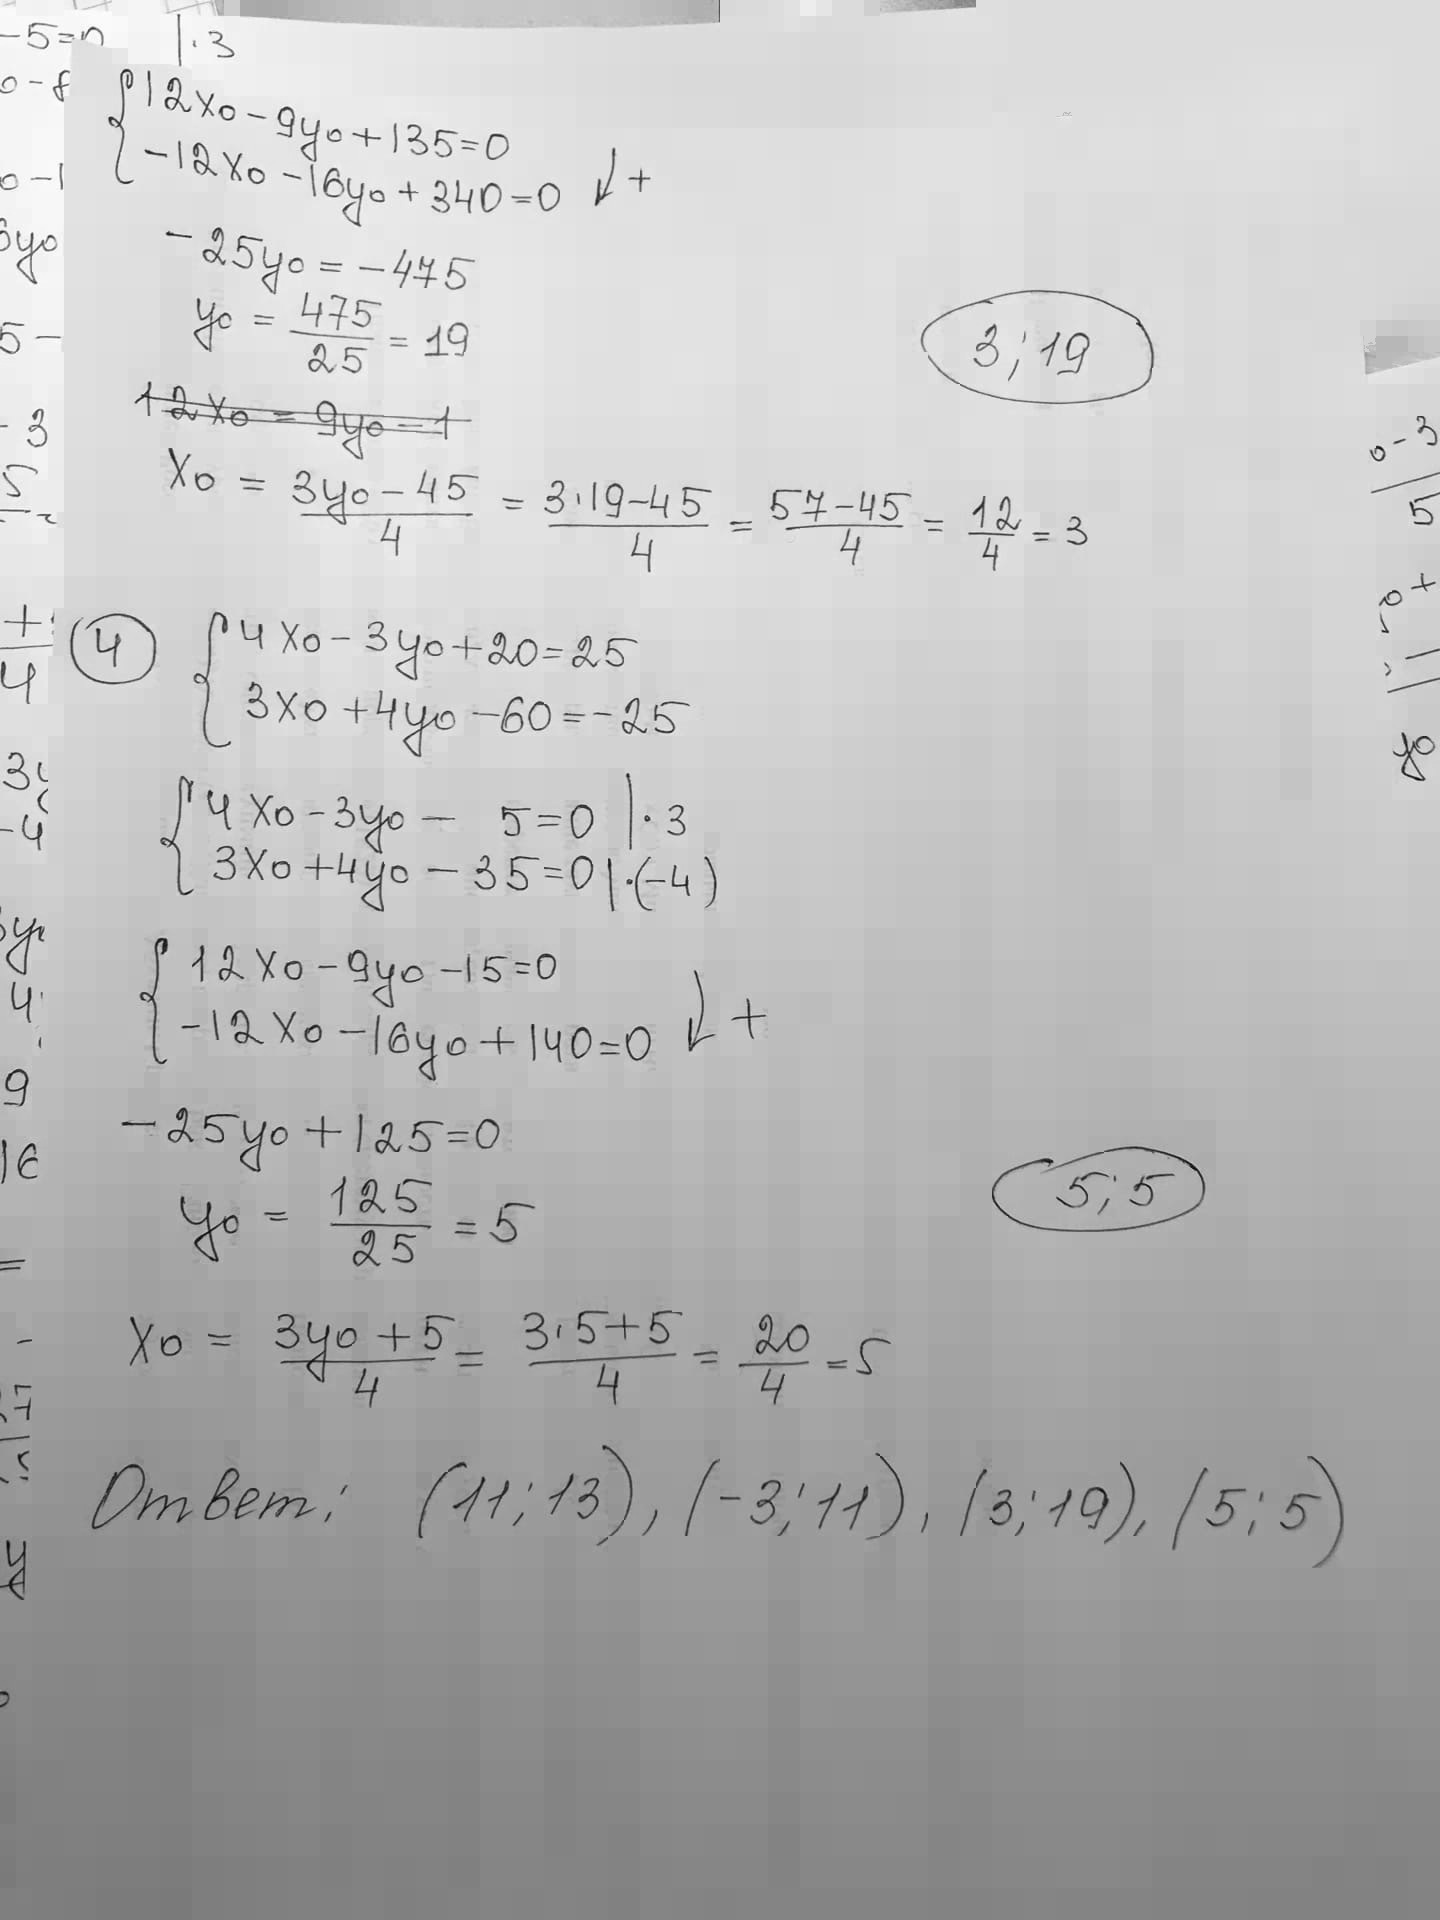 -5=0 |·3
{12x₀-9y₀+135=0
-12x₀-16y₀+340=0 ↓+
-25y₀=-475
y₀ = 475/25 = 19
3;19
12x₀ = 9y₀-1
x₀ = (3y₀-45)/4 = (3·19-45)/4 = (57-45)/4 = 12/4 = 3
④ {4x₀-3y₀+20=25
3x₀+4y₀-60=-25
{4x₀-3y₀- 5=0 |·3
3x₀+4y₀-35=0 |·(-4)
{12x₀-9y₀-15=0
-12x₀-16y₀+140=0 ↓+
-25y₀+125=0
y₀ = 125/25 = 5
5;5
x₀ = (3y₀+5)/4 = (3·5+5)/4 = 20/4 = 5
Ответ: (11;13), (-3;11), (3;19), (5;5)